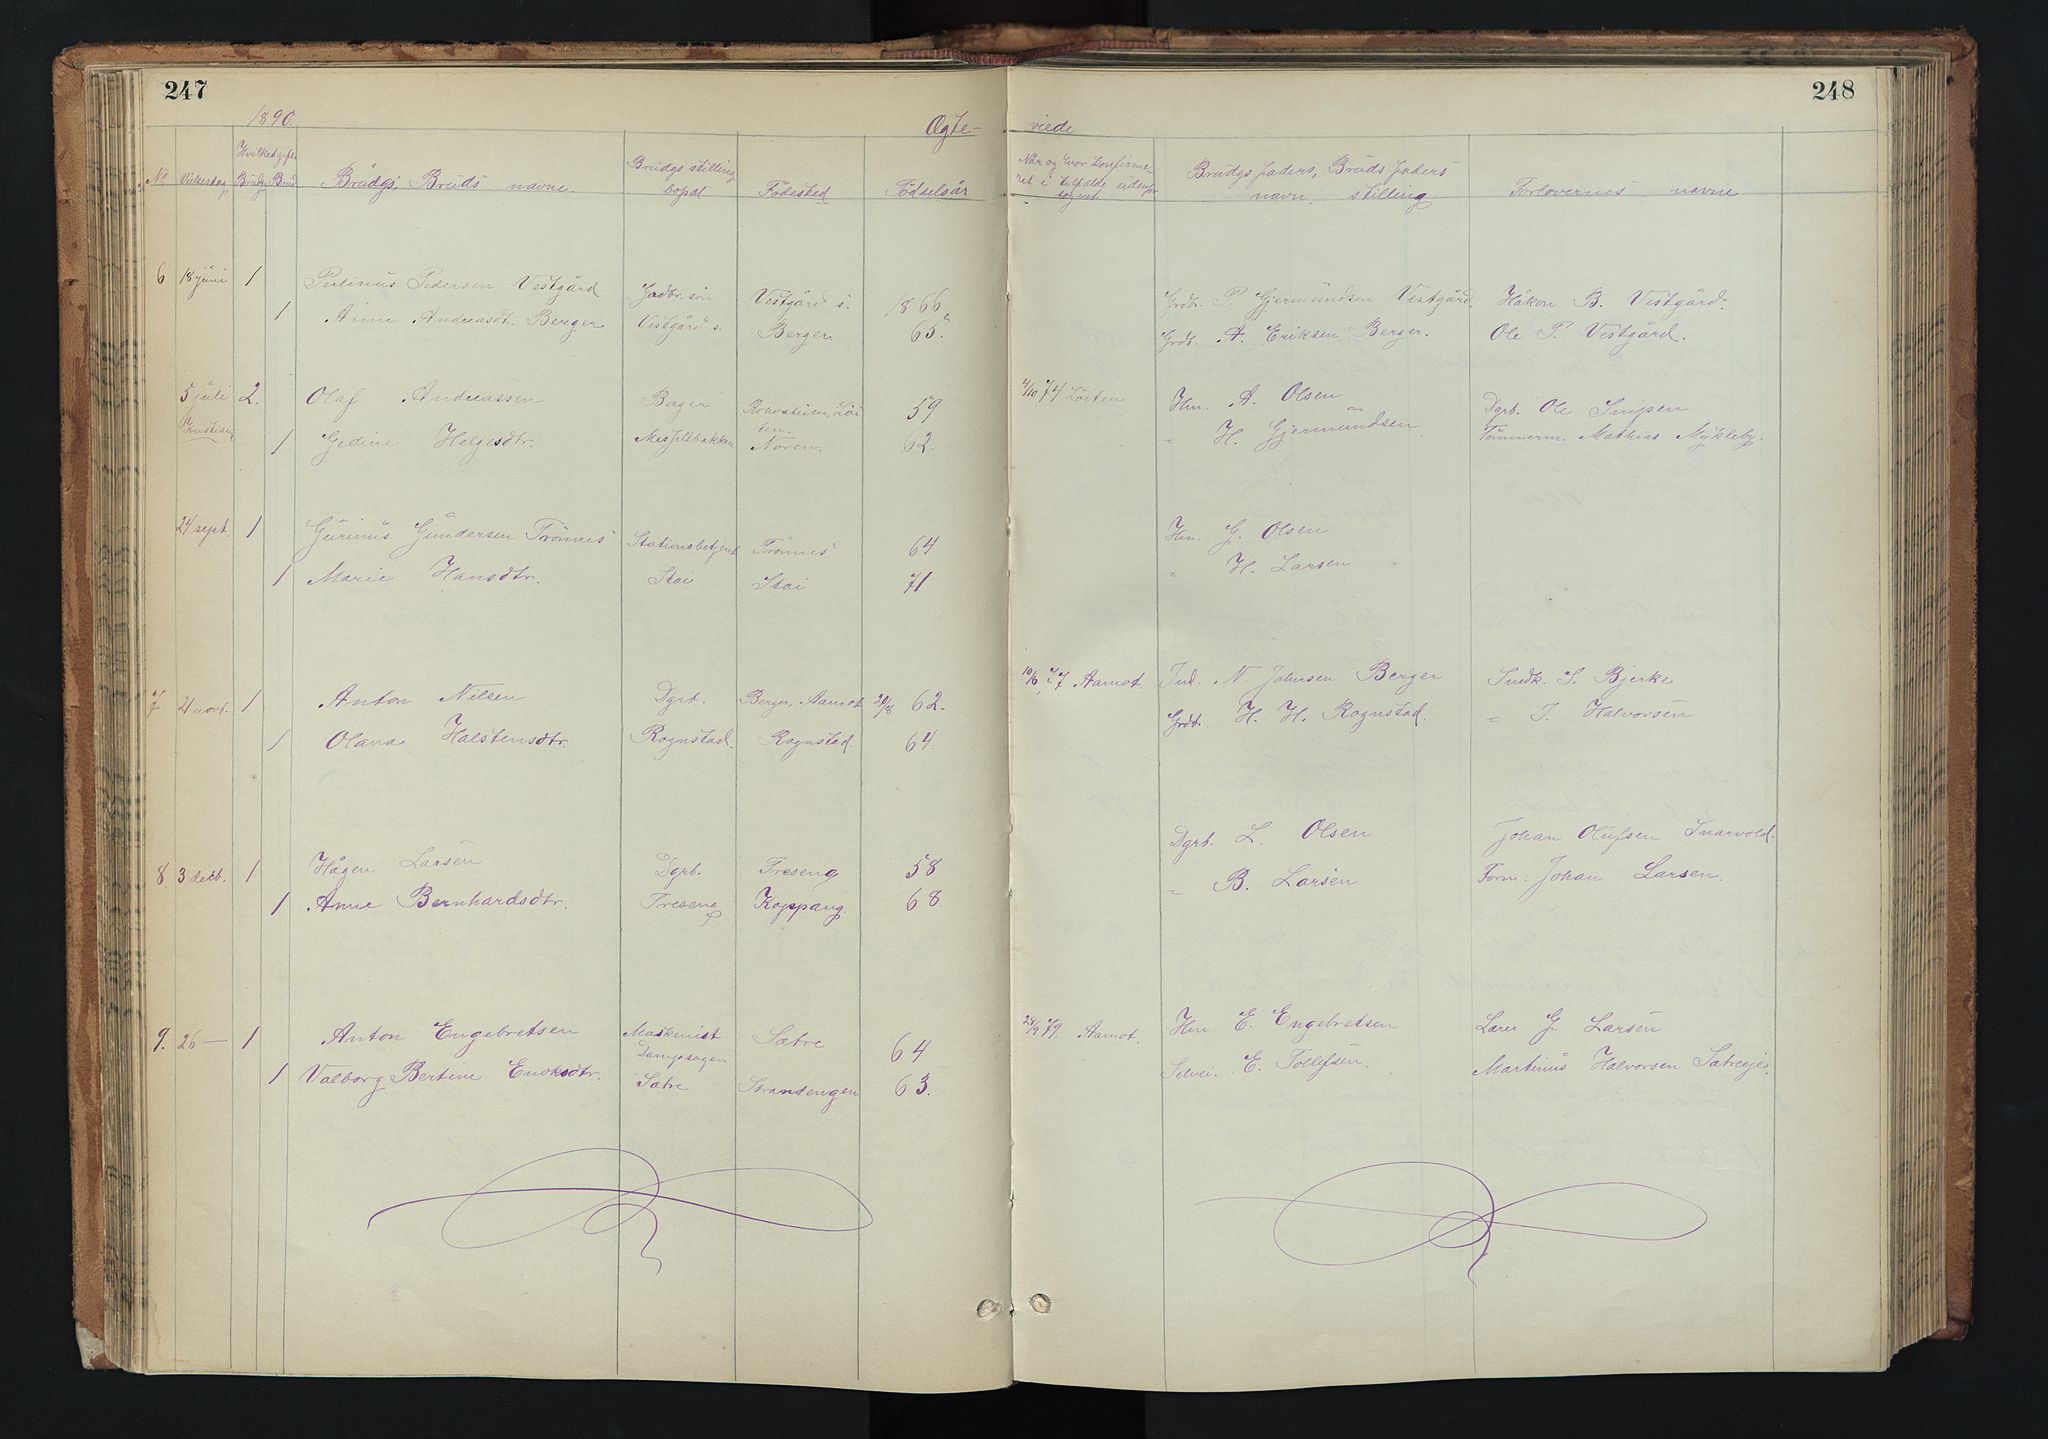 247
248
1890.
Ægte-
viede
No Vielsesdag Hvilket gifte Brudg. Brud Brudgs, Bruds navne. Brudgs stilling bopæl Fødested Fødselsår
Når og hvor konfirmeret i tilfælde udenfor sognet Brudgs faders, Bruds faders navn, stilling Forlovernes navne
6 18 juni 1 Pedersen Vestgård. Gadbr. søn Vestgård s. 1866 Grdb. P. Gjermundsen Vestgård Håkon B. Vestgård.
1 Anne Andreasdt. Berger Vestgård s. Berger. 65. Grdb. A. Eriksen Berger. Ole P. Vestgård.
5 juli 2. Olaf Andreassen Bager Løiten. 59 4/10 74 Løiten Hm. A. Olsen Dgrb. Ole Snipen
1 Gedine Helgesdtr. Messeltbakken Noren. 62. " H. Gjermundsen Tømmerm. Mathias Mykleby.
24 sept. 1 Gurinus Gundersen Trønnes Stationsbetjent Trønnes 64 Hm. G. Olsen
1 Marie Hansdtr. Stai Stai 71 " H. Larsen
7 21 novb. 1 Anton Nilsen Dgrb. Berger, Aamot 20/8 62. 10/6 77 Aamot. Ind. N. Johnsen Berger Snedk. S. Bjerke
1 Olava Halstensdtr. Rognstad. Rognstad. 64. Grdb. H. H. Rognstad. " T. Halvorsen
8 3 decb. 1 Hågen Larsen Dgrb. Treseng 58 Dgrb. L. Olsen Johan Olufsen Snarvold.
1 Anne Bernhardsdtr. Treseng Koppang. 68. " B. Larsen Form. Johan Larsen.
9. 26 — 1 Anton Engebretsen Maskinist Dampsagen Sætre 64 28/9 79. Aamot. Hm E. Engebretsen Lærer G. Larsen
1 Valborg Bertine Enoksdtr. Sætre Strandengen 63. Selvei. E. Tollefsen Martinus Halvorsen Sætreeje.